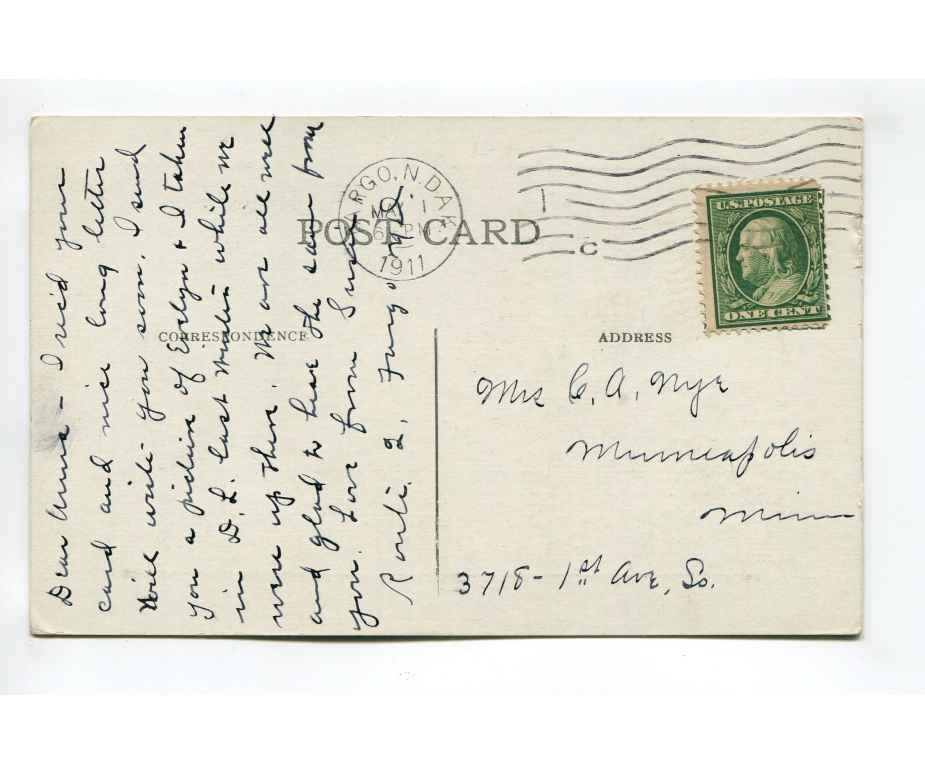 POST CARD
FARGO, N. DAK.
MA 1
6 PM
1911
C
U.S. POSTAGE
ONE CENT
CORRESPONDENCE
ADDRESS
Dear Anna - I rec'd your
card and nice long letter
Will write you soon, I send
you a picture of Evelyn & I taken
in D. L. last while we
were up there. We are all well
and glad to hear the same from
you. Love from
Route 2, Fargo N.D.
Mrs C. A. Nye
Minneapolis
Minn
3718 - 1st Ave, So.